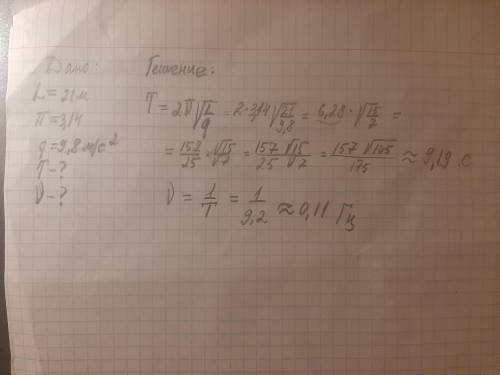 Дано:
L = 21 м
π = 3,14
g = 9,8 м/с²
T - ?
ν - ?
Решение:
T = 2π√(L/g) = 2·3,14√(21/9,8) = 6,28·√(15/7) =
= 157/25·√15/√7 = 157/25 √15/√7 = 157√105/175 ≈ 9,19 с
ν = 1/T = 1/9,2 ≈ 0,11 Гц